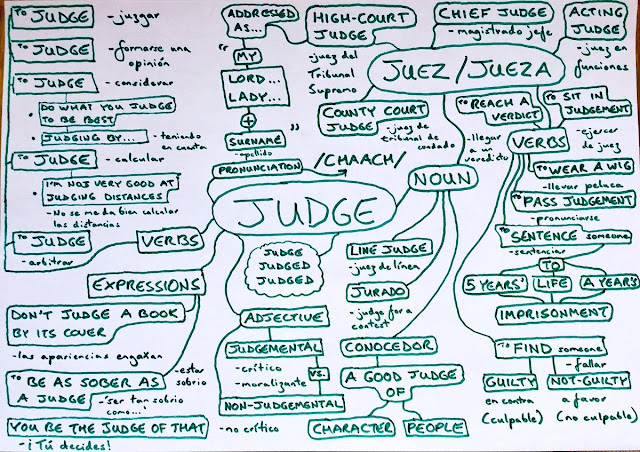 TO JUDGE - juzgar
TO JUDGE - formarse una
opinión
TO JUDGE - considerar
• DO WHAT YOU JUDGE
TO BE BEST
• JUDGING BY... - teniendo
en cuenta
TO JUDGE - calcular
• I'M NOT VERY GOOD AT
JUDGING DISTANCES
- No se me da bien calcular
las distancias
TO JUDGE
- arbitrar
VERBS
EXPRESSIONS
DON'T JUDGE A BOOK
BY ITS COVER
- las apariencias engañan
TO BE AS SOBER AS
A JUDGE
- estar
sobrio
- 'ser tan sobrio
como...'
YOU BE THE JUDGE OF THAT
- ¡Tú decides!
ADDRESSED
AS...
"
MY
LORD...
LADY...
+
SURNAME "
- apellido
PRONUNCIATION
/CHAACH/
JUDGE
JUDGE
JUDGED
JUDGED
ADJECTIVE
JUDGEMENTAL
- crítico
- moralizante
VS.
NON-JUDGEMENTAL
- no crítico
HIGH-COURT
JUDGE
- juez del
Tribunal
Supremo
CHIEF JUDGE
- magistrado jefe
ACTING
JUDGE
- juez en
funciones
JUEZ/JUEZA
COUNTY COURT
JUDGE
- juez de
tribunal de
condado
NOUN
LINE JUDGE
- juez de línea
JURADO
- judge for a
contest
CONOCEDOR
A GOOD JUDGE
OF
CHARACTER
PEOPLE
TO REACH A
VERDICT
- llegar
a un
veredito
TO SIT IN
JUDGEMENT
- ejercer
de juez
VERBS
TO WEAR A WIG
- llevar peluca
TO PASS JUDGEMENT
- pronunciarse
TO SENTENCE someone
- sentenciar
TO
5 YEARS'
LIFE
A YEAR'S
IMPRISONMENT
TO FIND someone
- fallar
GUILTY
en contra
(culpable)
NOT-GUILTY
a favor
(no culpable)